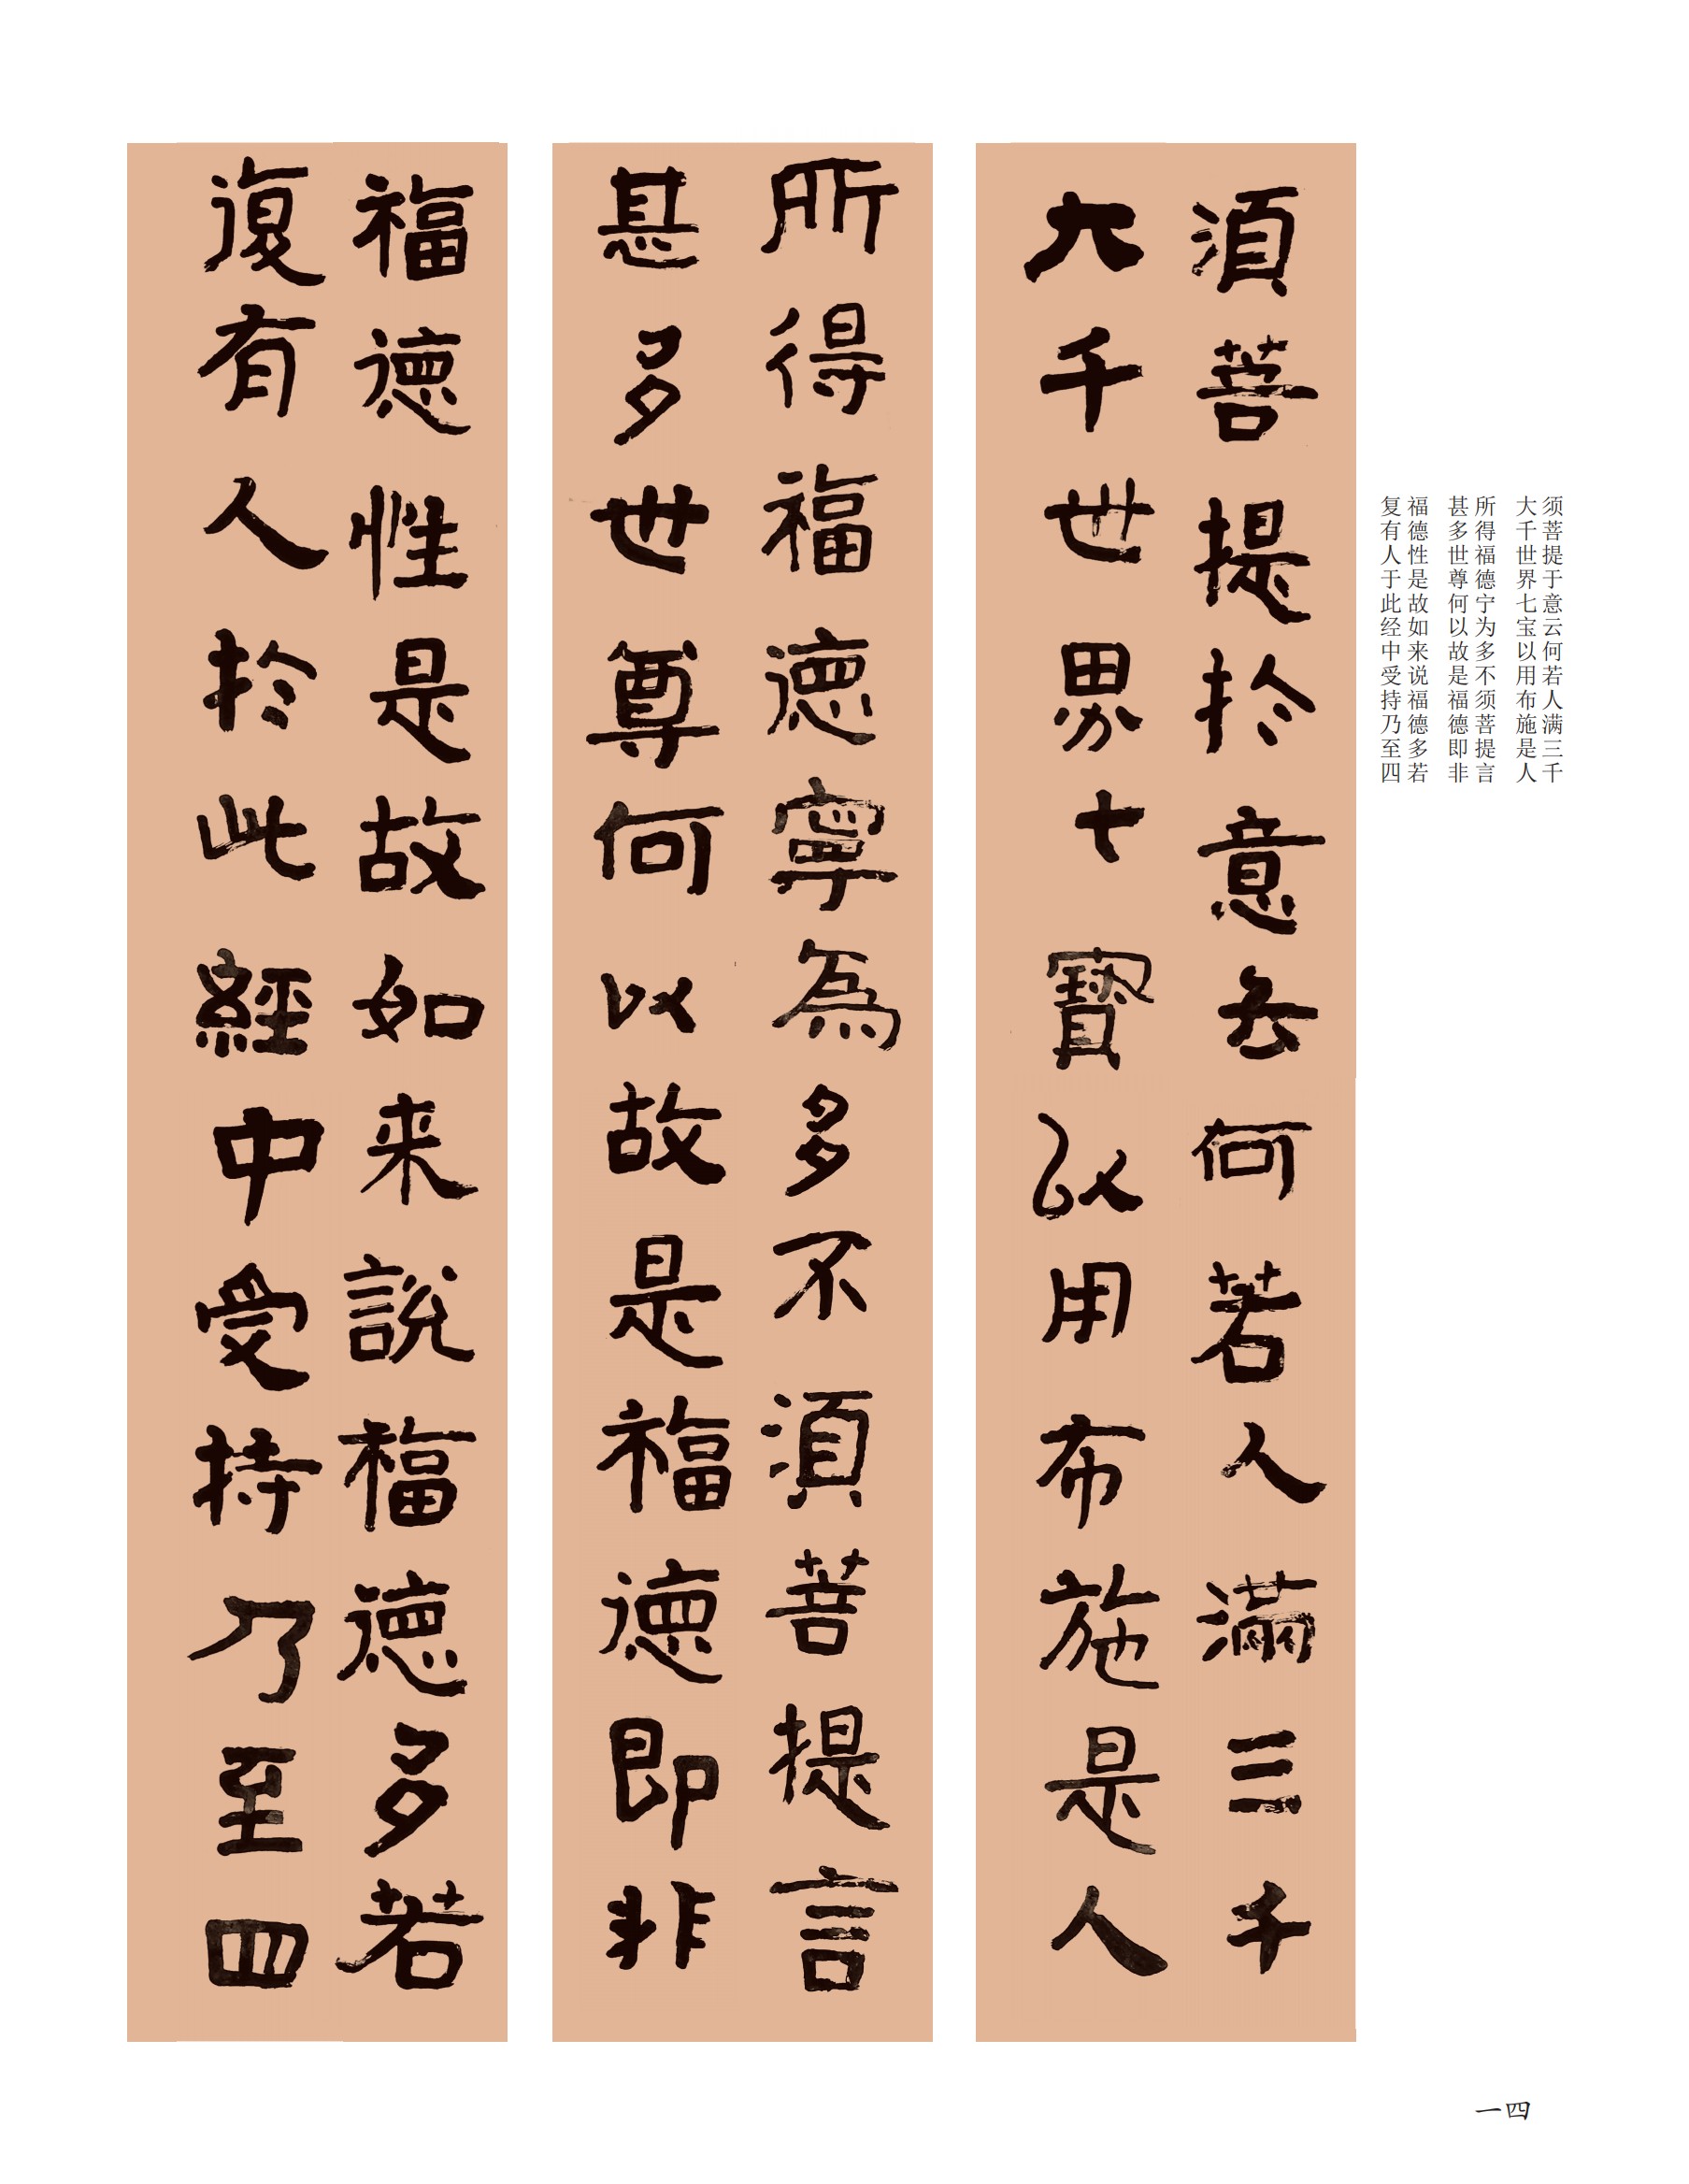 須菩提於意云何若人滿三千
大千世界七寶以用布施是人
所得福德寧為多不須菩提言
甚多世尊何以故是福德即非
福德性是故如来說福德多若
復有人於此經中受持乃至四
须菩提于意云何若人满三千
大千世界七宝以用布施是人
所得福德宁为多不须菩提言
甚多世尊何以故是福德即非
福德性是故如来说福德多若
复有人于此经中受持乃至四
一四